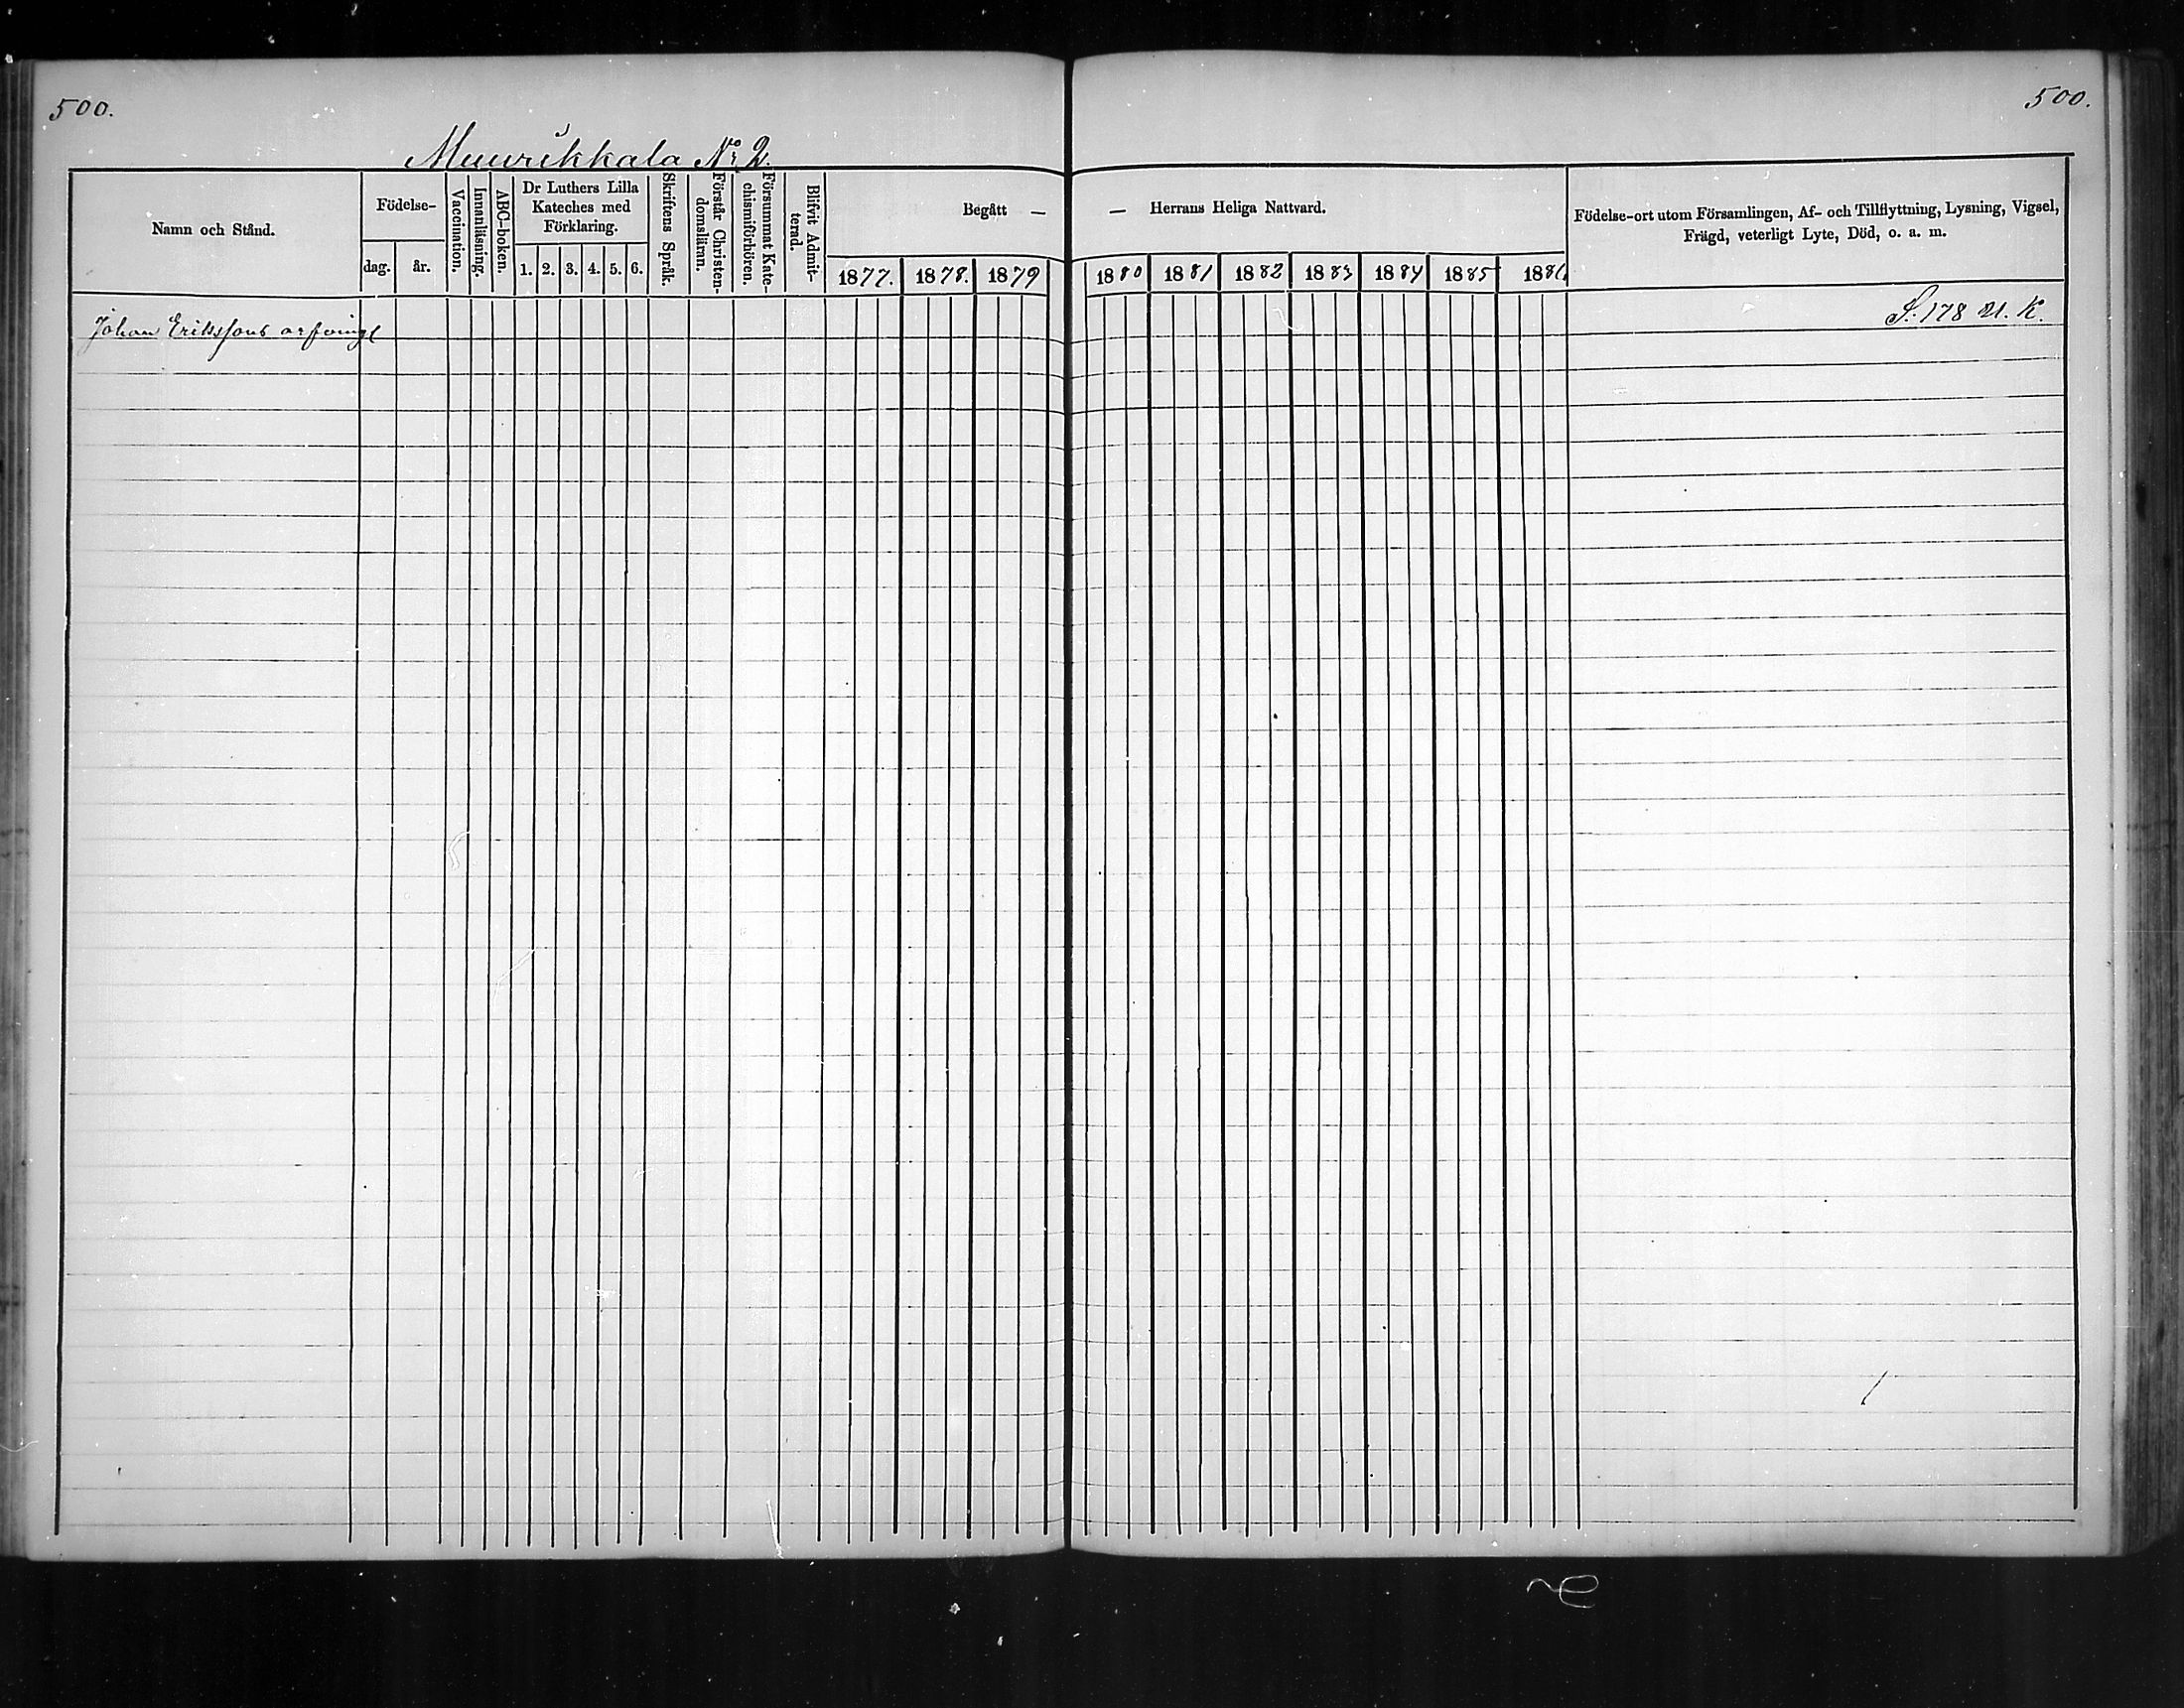 500.
500.
Muurikkala No 2.
Namn och Stånd.
Födelse-
dag.
år.
Vaccination.
Innanläsning.
ABC-boken.
Dr Luthers Lilla
Kateches med
Förklaring.
1. 2. 3. 4. 5. 6.
Skriftens Språk.
Förstår Christen-
domsläran.
Försummat Kate-
chismiförhören.
Blifvit Admit-
terad.
Begått —
— Herrans Heliga Nattvard.
1877. 1878. 1879
1880 1881 1882 1883 1884 1885 1886
Födelse-ort utom Församlingen, Af- och Tillflyttning, Lysning, Vigsel,
Frägd, veterligt Lyte, Död, o. a. m.
Johan Erikssons
S. 178 u. K.